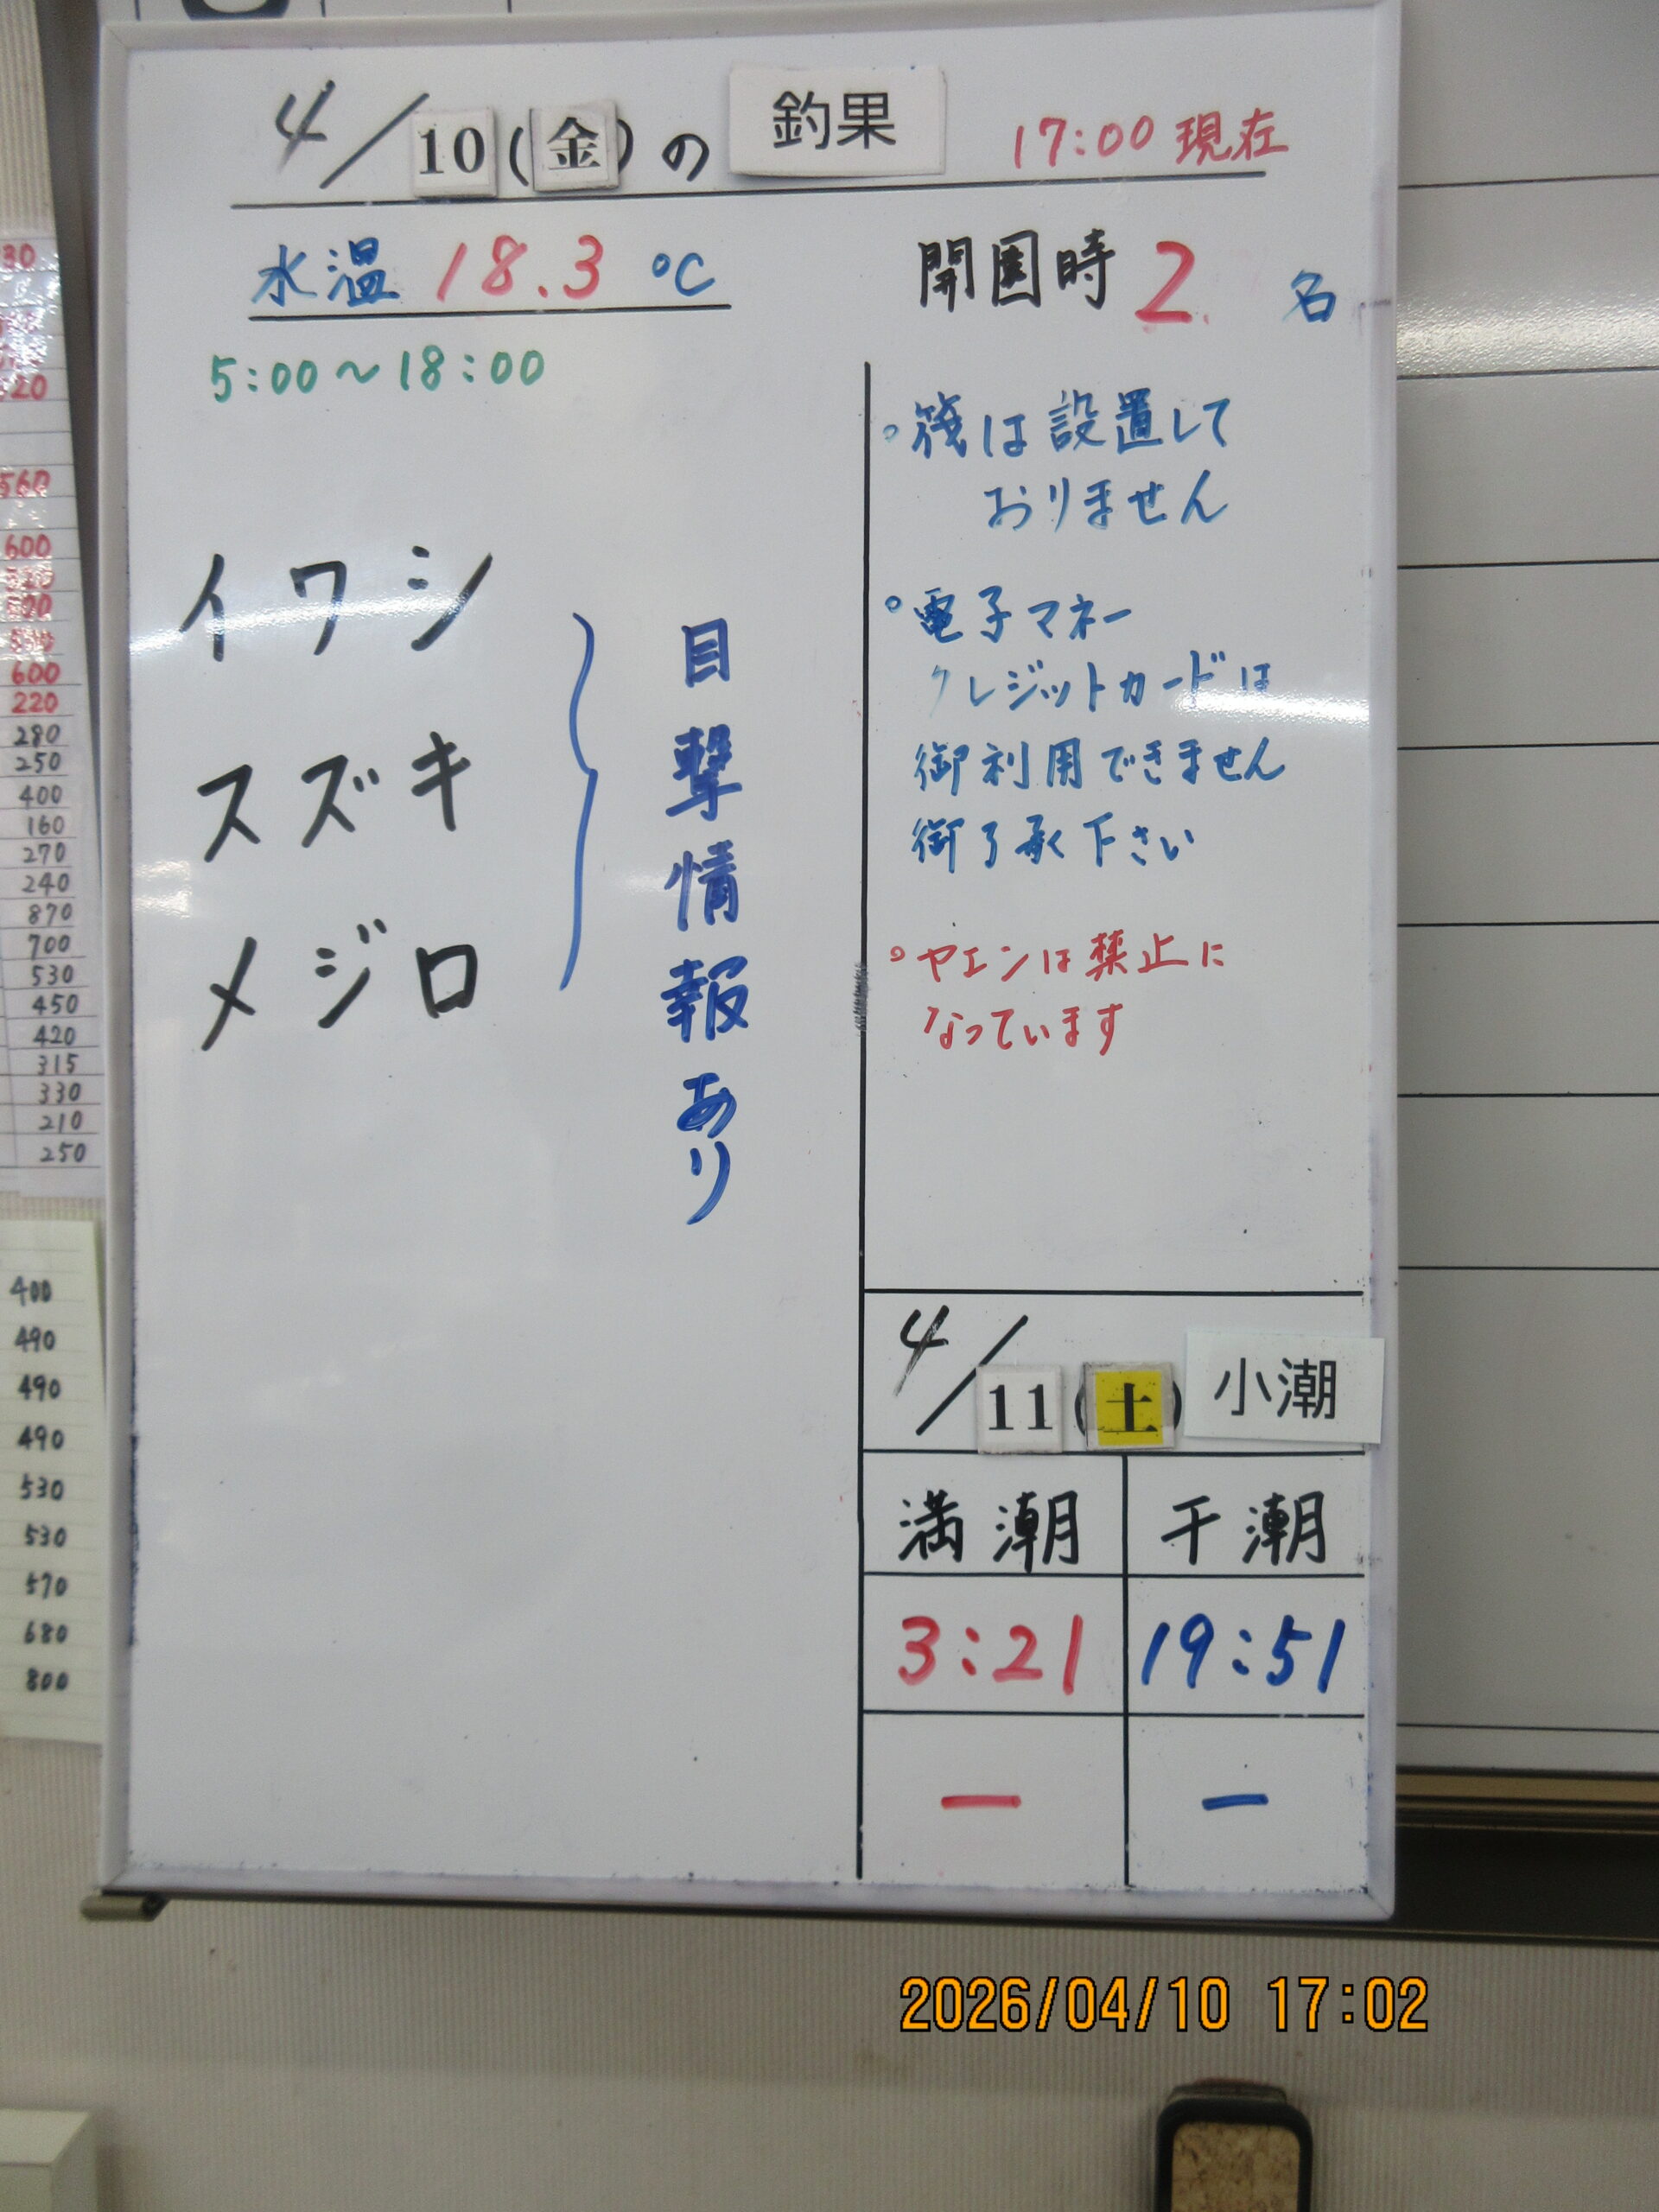 4/10(金)の 釣果 17:00 現在
水温 18.3 ℃
開園時 2 名
5:00～18:00
イワシ
スズキ
メジロ
目撃情報あり
。筏は設置して
おりません
。電子マネー
クレジットカードは
御利用できません
御了承下さい
。ヤエンは禁止に
なっています
4/11(土) 小潮
満潮 干潮
3:21 19:51
ー ー
30
20
560
600
600
220
280
250
400
160
270
240
870
700
530
450
420
315
330
210
250
400
490
490
490
530
530
570
680
800
2026/04/10 17:02